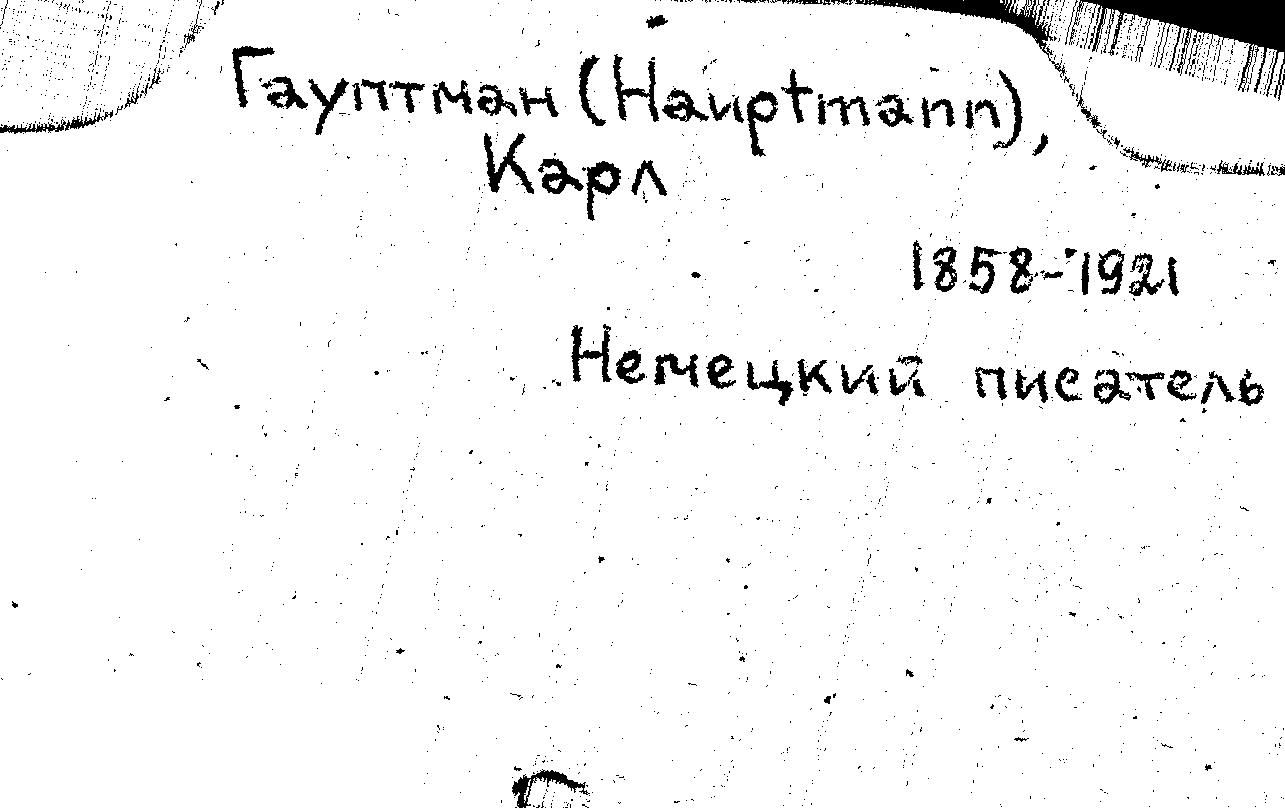 Гауптман (Hauptmann),
Карл
1858-1921
Немецкий писатель